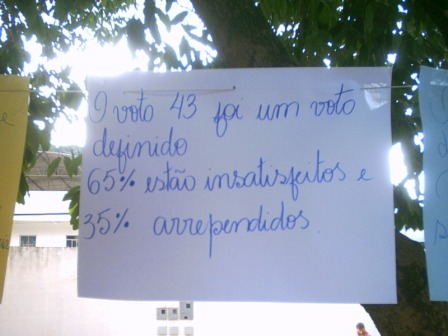 O voto 43 foi um voto
definido
65% estão insatisfeitos e
35% arrependidos.